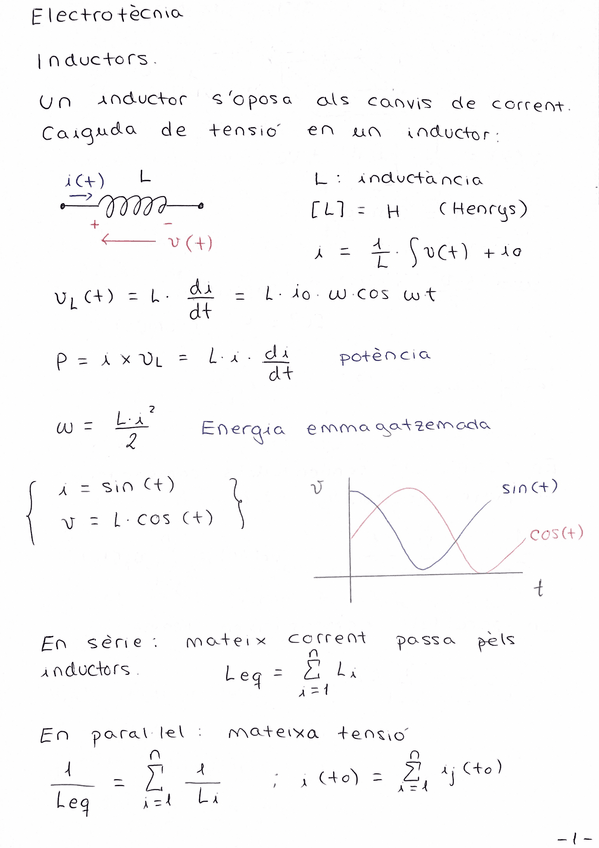 Electrotècnia
Inductors.
Un inductor s'oposa als canvis de corrent.
Caiguda de tensió en un inductor:
i(t) L
+ -
v(t)
L: inductància
[L] = H (Henrys)
i = 1/L · ∫v(t) + i0
v_L(t) = L · di/dt = L · i0 · ω · cos ωt
P = i × v_L = L · i · di/dt potència
ω = L·i²/2 Energia emmagatzemada
{ i = sin(t)
v = L·cos(t) }
v
sin(t)
cos(t)
t
En sèrie: mateix corrent passa pèls
inductors. Leq = Σ_{i=1}^{n} Li
En paral·lel: mateixa tensió
1/Leq = Σ_{i=1}^{n} 1/Li ; i(t0) = Σ_{i=1}^{n} ij(t0)
-1-